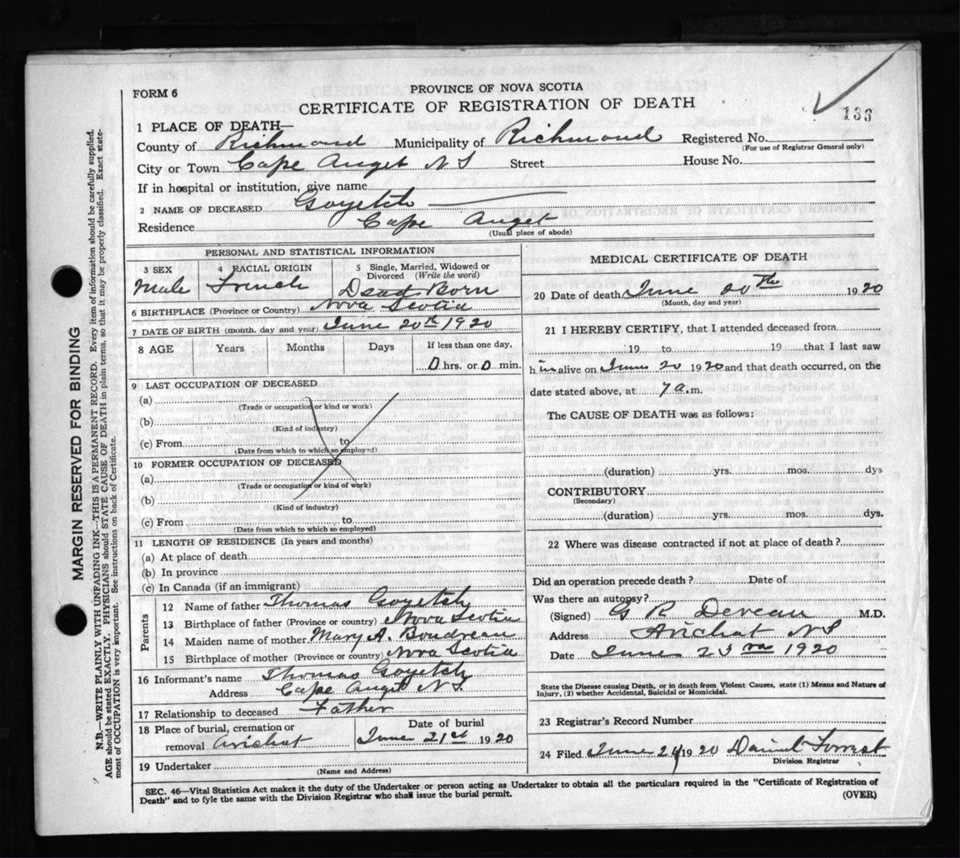 FORM 6
PROVINCE OF NOVA SCOTIA
CERTIFICATE OF REGISTRATION OF DEATH
133
1 PLACE OF DEATH—
County of Richmond Municipality of Richmond Registered No.
(For use of Registrar General only)
City or Town Cape Auget N S Street House No.
If in hospital or institution, give name
2 NAME OF DECEASED Goyetch
Residence Cape Auget
(Usual place of abode)
PERSONAL AND STATISTICAL INFORMATION
3 SEX 4 RACIAL ORIGIN 5 Single, Married, Widowed or Divorced (Write the word)
Male French Dead Born
6 BIRTHPLACE (Province or Country) Nova Scotia
7 DATE OF BIRTH (month, day and year) June 20th 1920
8 AGE Years Months Days If less than one day,
0 hrs. or 0 min.
9 LAST OCCUPATION OF DECEASED
(a)
(Trade or occupation or kind or work)
(b)
(Kind of industry)
(c) From to
(Date from which to which so employed)
10 FORMER OCCUPATION OF DECEASED
(a)
(Trade or occupation or kind of work)
(b)
(Kind of industry)
(c) From to
(Date from which to which so employed)
11 LENGTH OF RESIDENCE (In years and months)
(a) At place of death
(b) In province
(c) In Canada (if an immigrant)
Parents
12 Name of father Thomas Goyetch
13 Birthplace of father (Province or country) Nova Scotia
14 Maiden name of mother Mary A. Boudreau
15 Birthplace of mother (Province or country) Nova Scotia
16 Informant's name Thomas Goyetch
Address Cape Auget N S.
17 Relationship to deceased Father
18 Place of burial, cremation or removal Arichat Date of burial June 21st 1920
19 Undertaker
(Name and Address)
MEDICAL CERTIFICATE OF DEATH
20 Date of death June 20th 1920
(Month, day and year)
21 I HEREBY CERTIFY, that I attended deceased from
19 to 19 that I last saw
him alive on June 20 1920 and that death occurred, on the
date stated above, at 7 a.m.
The CAUSE OF DEATH was as follows:
(duration) yrs. mos. dys
CONTRIBUTORY
(Secondary)
(duration) yrs. mos. dys.
22 Where was disease contracted if not at place of death?
Did an operation precede death? Date of
Was there an autopsy?
(Signed) G R Deveau M.D.
Address Arichat N S
Date June 23rd 1920
State the Disease causing Death, or in death from Violent Causes, state (1) Means and Nature of Injury, (2) whether Accidental, Suicidal or Homicidal.
23 Registrar's Record Number
24 Filed June 24 1920 Daniel Forrest
Division Registrar
SEC. 46—Vital Statistics Act makes it the duty of the Undertaker or person acting as Undertaker to obtain all the particulars required in the "Certificate of Registration of
Death" and to fyle the same with the Division Registrar who shall issue the burial permit.
(OVER)
MARGIN RESERVED FOR BINDING
N.B.—WRITE PLAINLY WITH UNFADING INK—THIS IS A PERMANENT RECORD. Every item of information should be carefully supplied.
AGE should be stated EXACTLY. PHYSICIANS should STATE CAUSE OF DEATH in plain terms, so that it may be properly classified. Exact statement of OCCUPATION is very important. See instructions on back of Certificate.